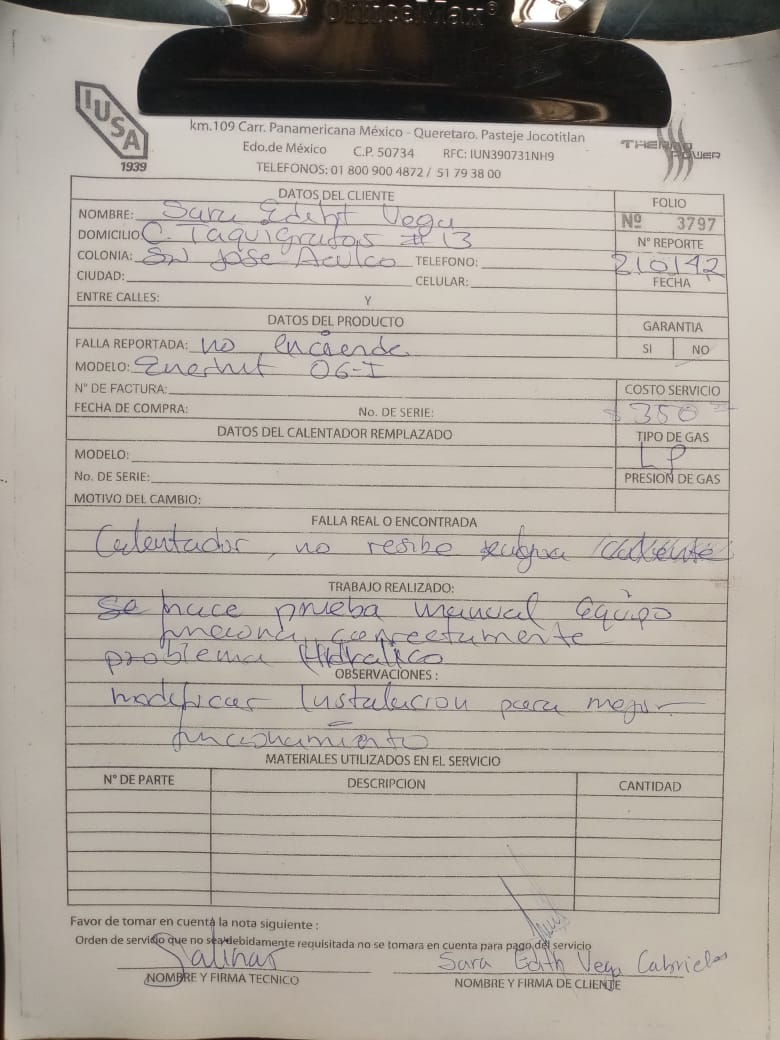 OfficeMax®
IUSA
1939
km.109 Carr. Panamericana México - Queretaro. Pasteje Jocotitlan
Edo.de México C.P. 50734 RFC: IUN390731NH9
TELEFONOS: 01 800 900 4872 / 51 79 38 00
THERMO POWER
DATOS DEL CLIENTE
FOLIO
NOMBRE: Sara Edeht Vega
Nº 3797
DOMICILIO C. Taquigrafos # 13
Nº REPORTE
COLONIA: Sn Jose Aculco TELEFONO:
210142
CIUDAD: CELULAR:
FECHA
ENTRE CALLES: Y
DATOS DEL PRODUCTO
GARANTIA
FALLA REPORTADA: no enciende
SI NO
MODELO: Enerhit 06-I
N° DE FACTURA:
COSTO SERVICIO
FECHA DE COMPRA: No. DE SERIE:
$ 350
DATOS DEL CALENTADOR REMPLAZADO
TIPO DE GAS
MODELO:
LP
No. DE SERIE:
PRESION DE GAS
MOTIVO DEL CAMBIO:
FALLA REAL O ENCONTRADA
Calentador, no resibe agua
TRABAJO REALIZADO:
se hace prueba manual equipo
funciona correctamente
problema Hidralico
OBSERVACIONES :
modificar Instalacion para mejor
funcionamiento
MATERIALES UTILIZADOS EN EL SERVICIO
N° DE PARTE DESCRIPCION CANTIDAD
Favor de tomar en cuenta la nota siguiente :
Orden de servicio que no sea debidamente requisitada no se tomara en cuenta para pago del servicio
Salinas
Sara Edith Vega Cabrieles
NOMBRE Y FIRMA TECNICO
NOMBRE Y FIRMA DE CLIENTE